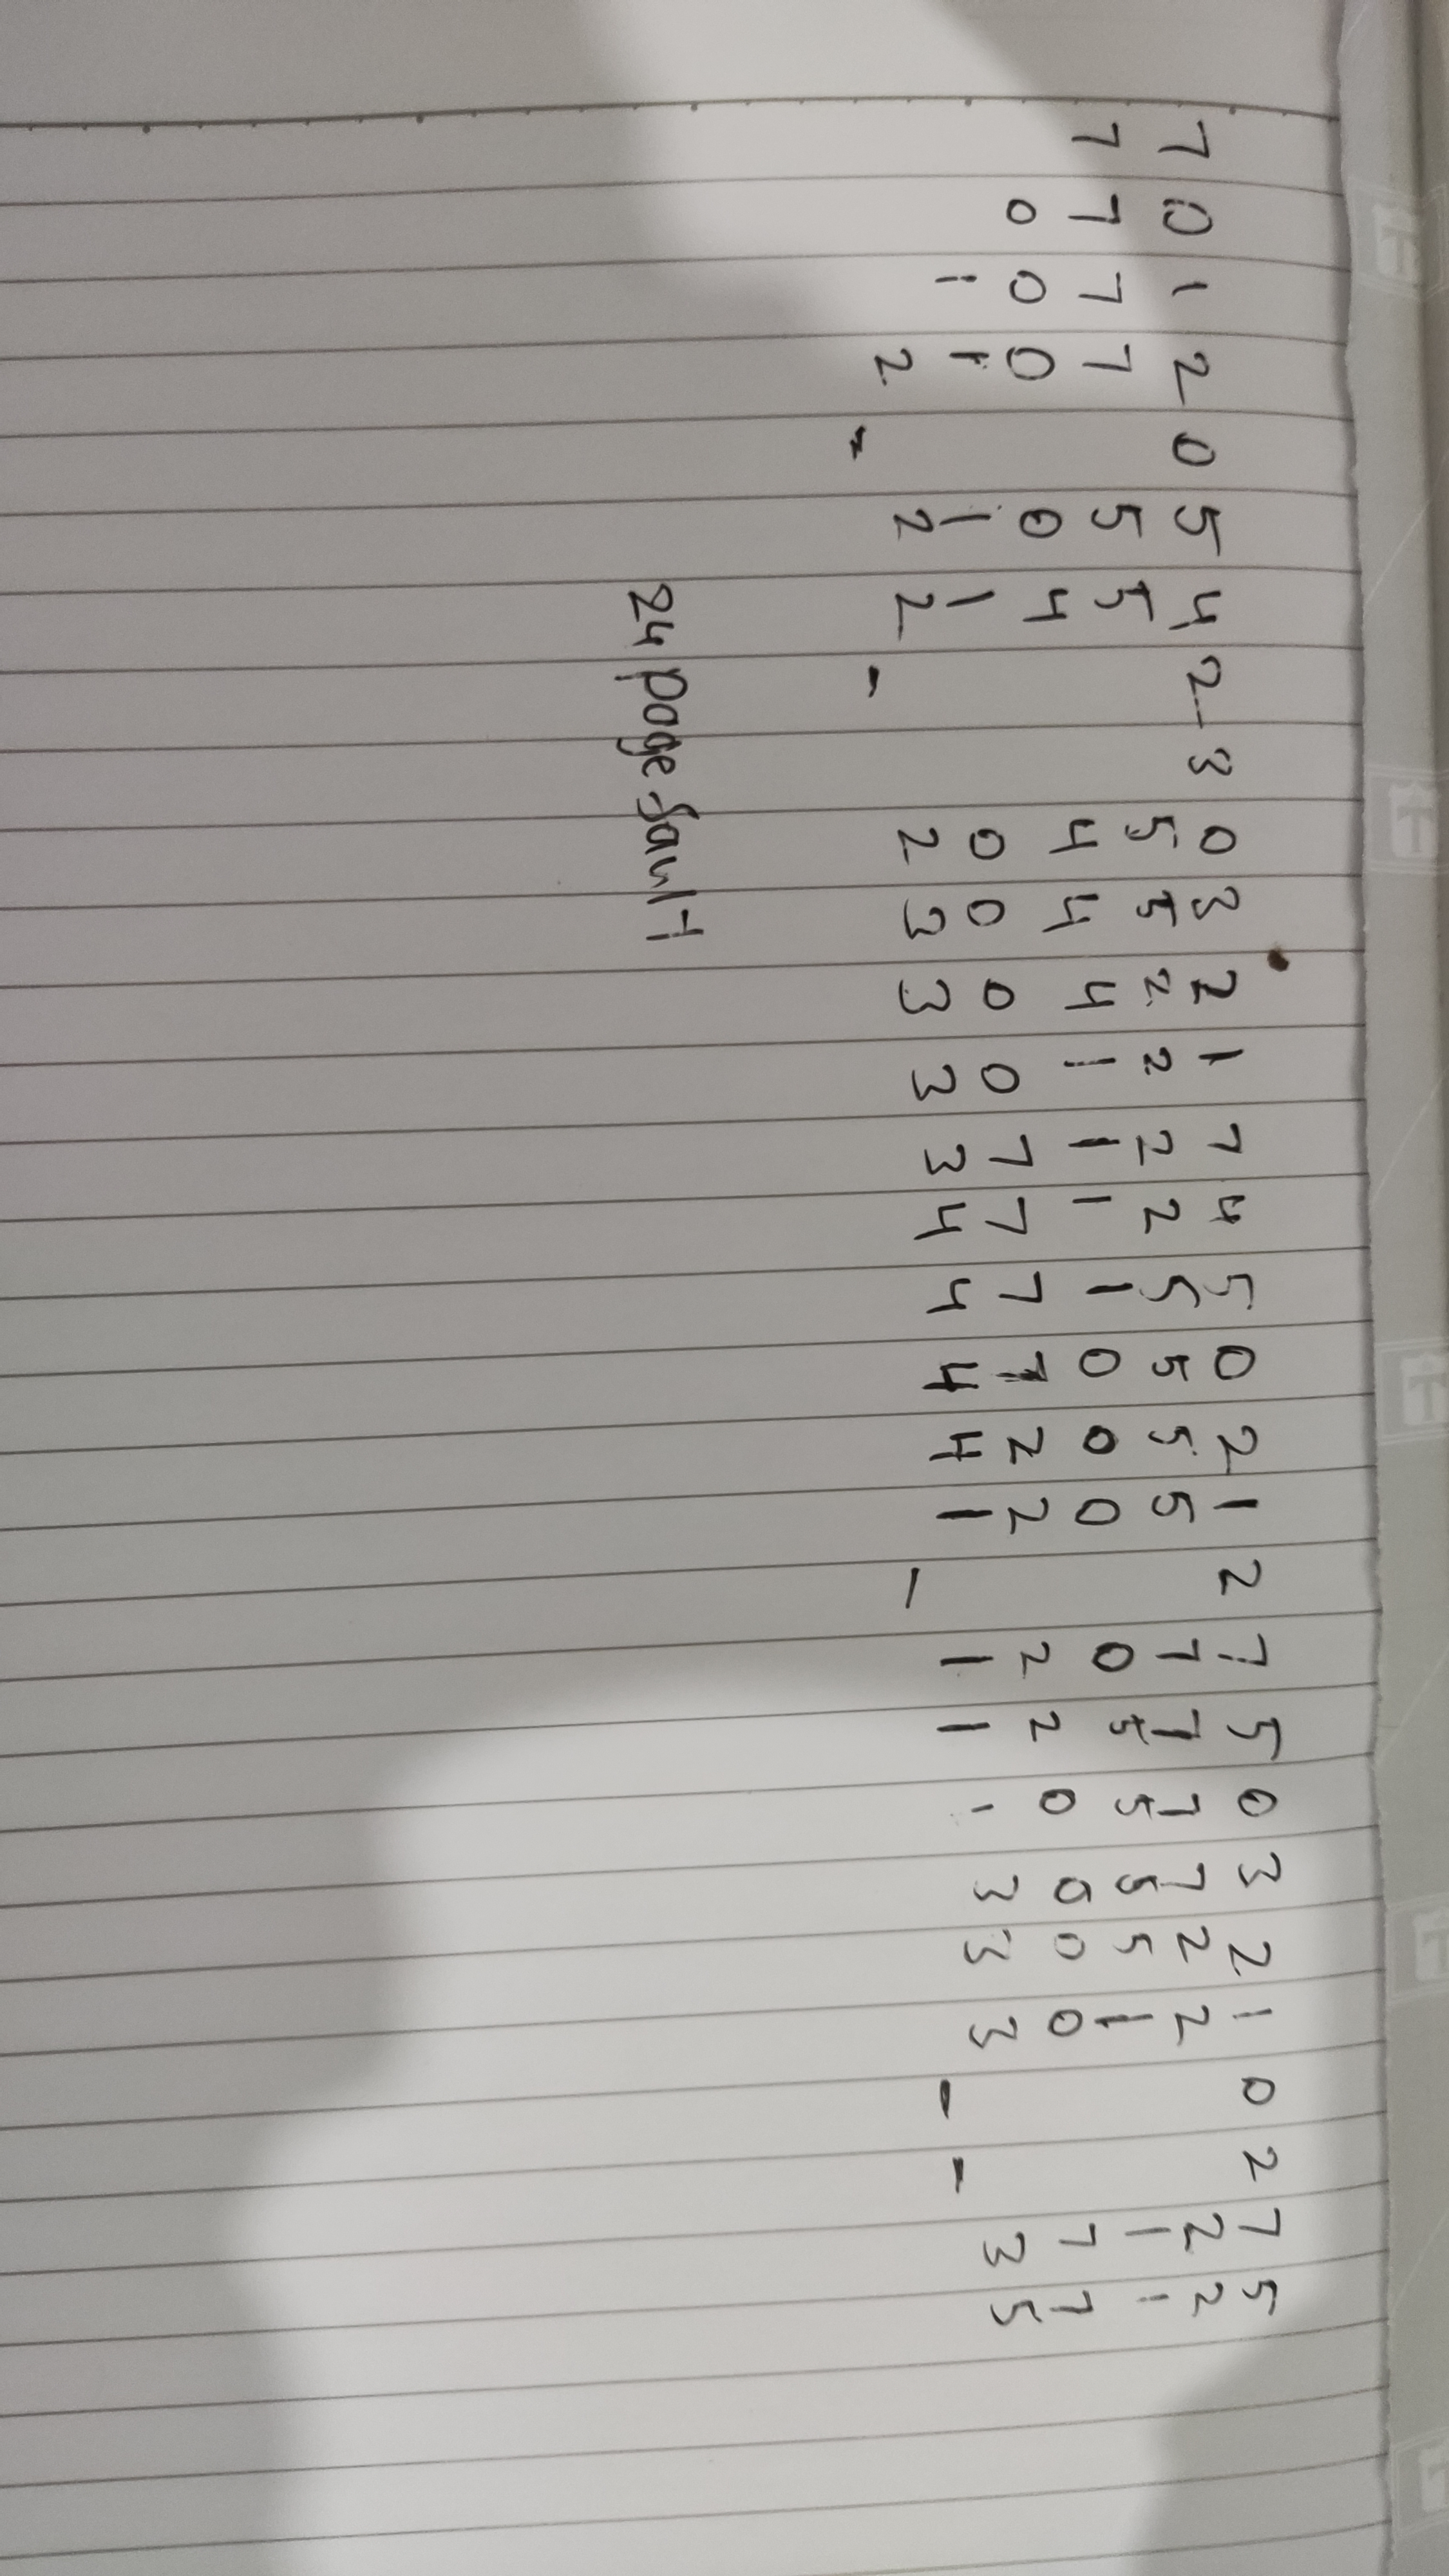 7 0 1 2 0 5 4 2 3 0 3 2 1 7 4 5 0 2 1 2 7 5 0 3 2 1 0 2 7 5
7 7 7 7 5 5 5 5 2 2 2 2 5 5 5 5 7 7 7 7 2 2 2 2
0 0 0 0 4 4 4 4 1 1 1 1 0 0 0 0 5 5 5 5 1 1 1
1 1 1 1 0 0 0 0 7 7 7 7 2 2 2 2 0 0 0 0 7 7
2 - 2 2 - 2 3 3 3 3 4 4 4 4 1 - 1 1 1 3 3 3 - - 3 5
24 page fault